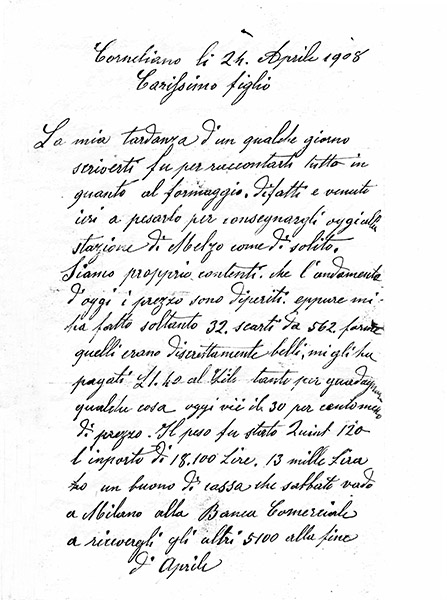 Corneliano li 24. Aprile 1908
Carissimo figlio
La mia tardanza d'un qualche giorno
scriverti fu per raccontarti tutto in
quanto al formaggio. difatti e venuto
ieri a pesarlo per consegnargli oggi alla
stazione di Melzo come di solito.
Siamo propprio contenti. che l'andamento
d'oggi i prezzo sono diperiti. eppure mi
ha fatto soltanto 32. scarti da 562 forme
quelli erano discrettamente belli, mi gli ha
pagati £1.40 al Kilo tanto per guadagnare
qualche cosa oggi vi è il 30 per cento meno
di prezzo. Il peso fu stato Quint 120
l'inporto di 18.100 Lire, 13 mille Lira
un buono di cassa che sabbato vado
a Milano alla Banca Comerciale
a riceverghi gli altri 5100 alla fine
d'Aprile